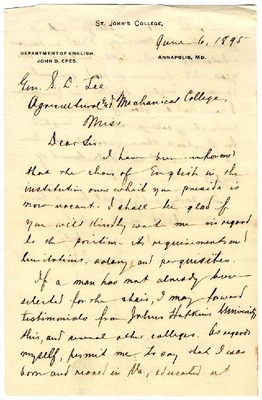 ST. JOHN'S COLLEGE,
DEPARTMENT OF ENGLISH.
JOHN D. EPES.
ANNAPOLIS, MD.
June 6, 1895
Gen. S. D. Lee
Agricultural & Mechanical College,
Miss.
Dear Sir:
I have been informed
that the chair of English in the
institution over which you preside is
now vacant. I shall be glad if
you will kindly write me in regard
to the position its requirements and
limitations, salary, and perquisites.
If a man has not already been
selected for the chair, I may forward
testimonials from Johns Hopkins University,
this, and several other colleges. As regards
myself, permit me to say that I was
born and reared in Va., educated at